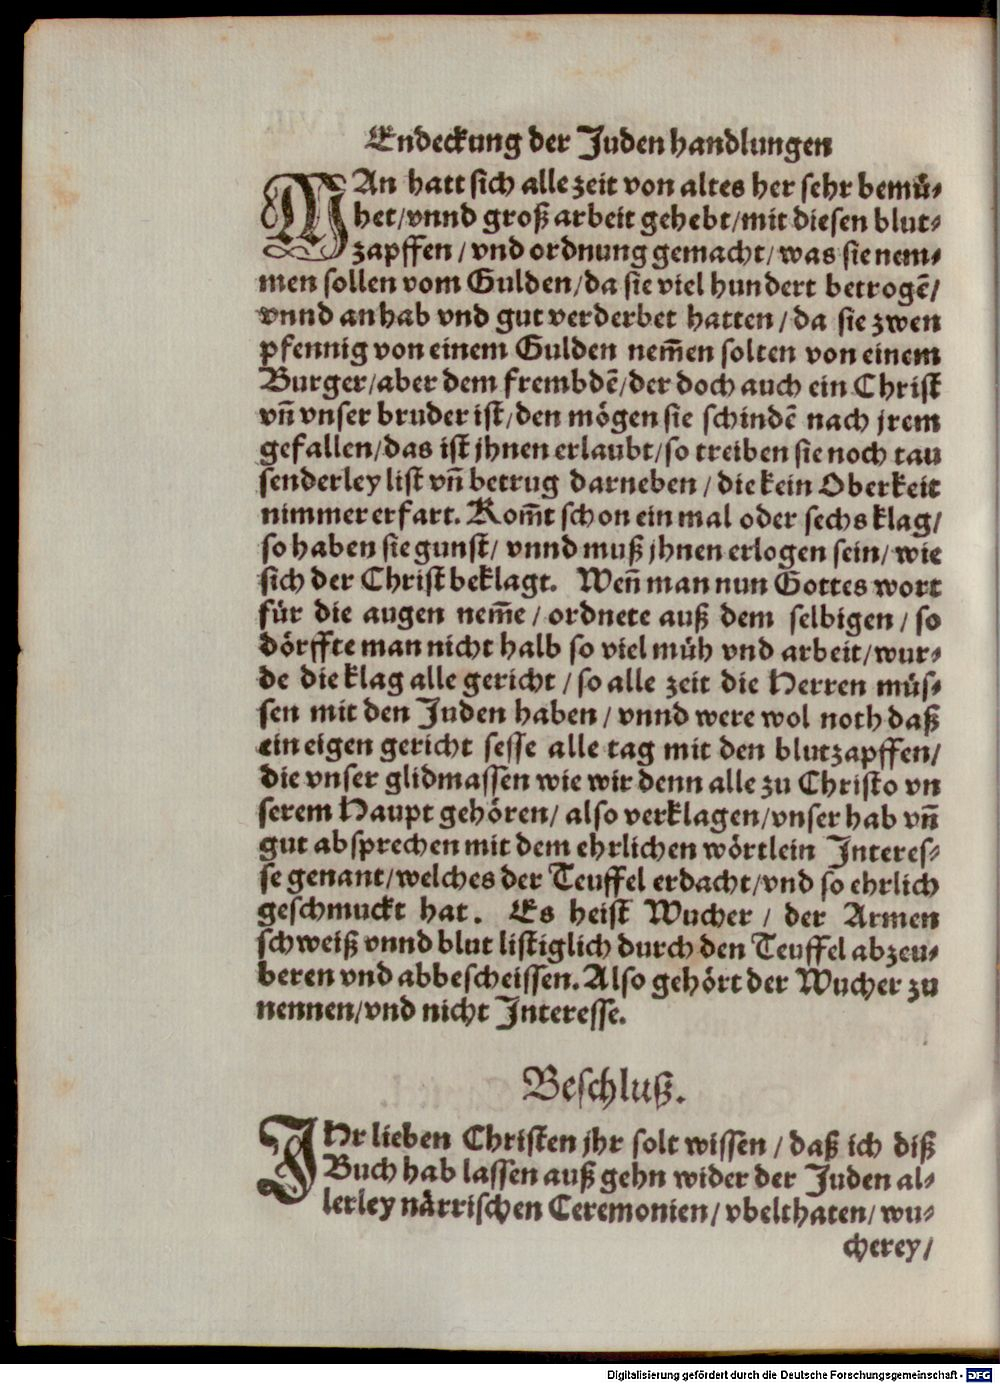 Endeckung der Juden handlungen
MAn hatt sich alle zeit von altes her sehr bemuͤ⸗
het/vnnd groß arbeit gehebt/mit diesen blut⸗
zapffen/vnd ordnung gemacht/was sie nem⸗
men sollen vom Gulden/da sie viel hundert betrogē/
vnnd an hab vnd gut verderbet hatten/da sie zwen
pfennig von einem Gulden nem̄en solten von einem
Burger/aber dem frembdē/der doch auch ein Christ
vn̄ vnser bruder ist/den moͤgen sie schindē nach jrem
gefallen/das ist jhnen erlaubt/so treiben sie noch tau
senderley list vn̄ betrug darneben/die kein Oberkeit
nimmer erfart. Kom̄t schon ein mal oder sechs klag/
so haben sie gunst/vnnd muß jhnen erlogen sein/wie
sich der Christ beklagt. Wen̄ man nun Gottes wort
fuͤr die augen nem̄e/ordnete auß dem selbigen/so
doͤrffte man nicht halb so viel muͤh vnd arbeit/wur⸗
de die klag alle gericht/so alle zeit die Herren muͤs⸗
sen mit den Juden haben/vnnd were wol noth daß
ein eigen gericht sesse alle tag mit den blutzapffen/
die vnser glidmassen wie wir denn alle zu Christo vn
serem Haupt gehoͤren/also verklagen/vnser hab vn̄
gut absprechen mit dem ehrlichen woͤrtlein Interes⸗
se genant/welches der Teuffel erdacht/vnd so ehrlich
geschmuckt hat. Es heist Wucher/der Armen
schweiß vnnd blut listiglich durch den Teuffel abzeu⸗
beren vnd abbescheissen. Also gehoͤrt der Wucher zu
nennen/vnd nicht Interesse.
Beschluß.
IHr lieben Christen jhr solt wissen/daß ich diß
Buch hab lassen auß gehn wider der Juden al⸗
lerley naͤrrischen Ceremonien/vbelthaten/wu⸗
cherey/
Digitalisierung gefördert durch die Deutsche Forschungsgemeinschaft - DFG